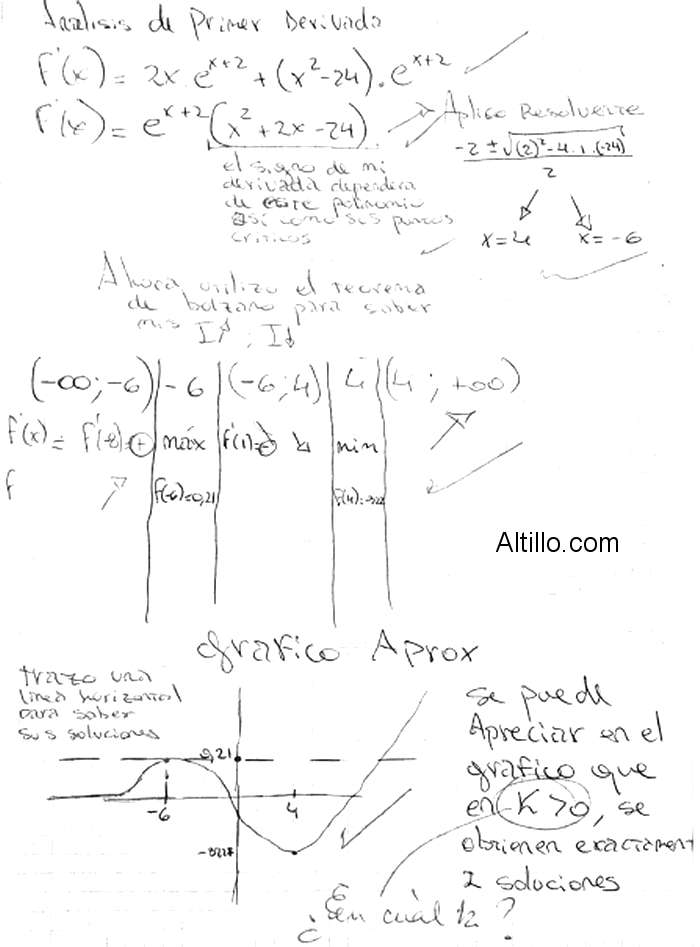 Análisis de Primer Derivada
f'(x) = 2x e^{x+2} + (x^2-24).e^{x+2}
f'(x) = e^{x+2}(x^2+2x-24) → Aplico Resolvente
-2 ± √((2)^2-4.1.(-24))
2
x=4 x=-6
el signo de mi
derivada dependera
de este polinomio
así como sus puntos
criticos
Ahora utilizo el teorema
de bolzano para saber
mis I↑ ; I↓
(-∞;-6) | -6 | (-6;4) | 4 | (4 ; +∞)
f'(x) = máx min
f f(-6)=0,21
Altillo.com
grafico Aprox
trazo una
linea horizontal
para saber
sus soluciones
0,21
-6
4
se puede
Apreciar en el
grafico que
en K>0, se
obtienen exactament
2 soluciones
¿En cuál k?